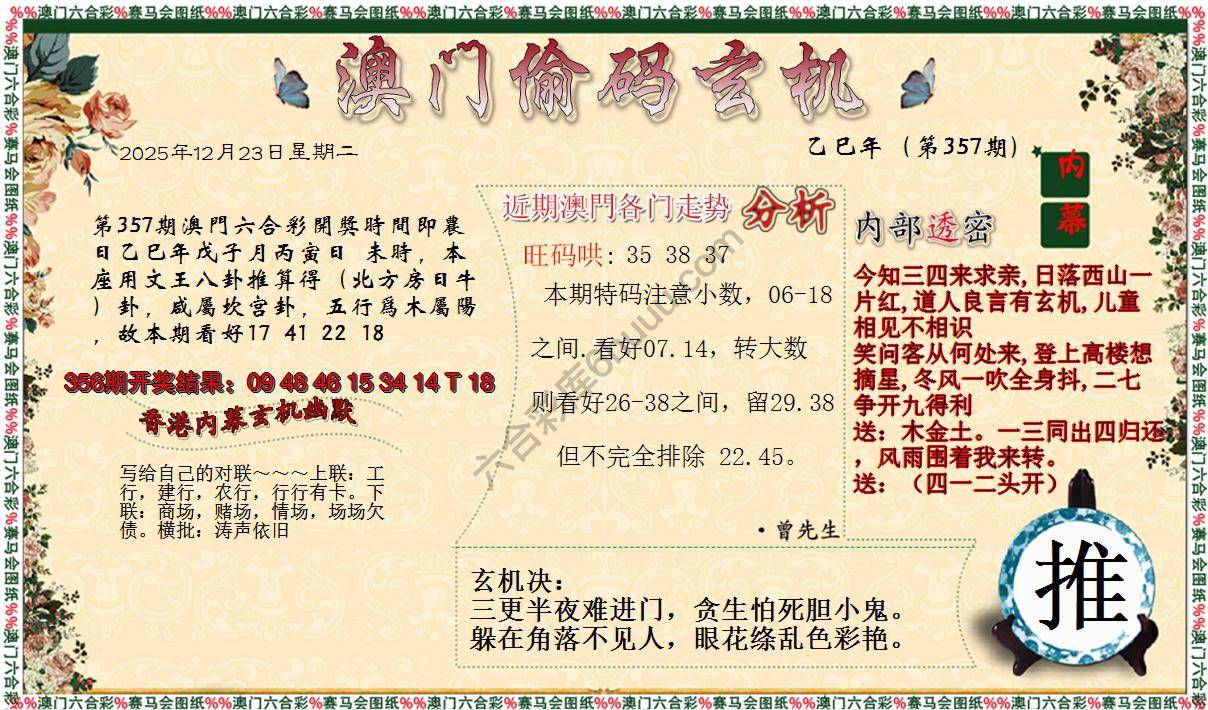 %%澳门六合彩%赛马会图纸%%澳门六合彩%赛马会图纸%%澳门六合彩%赛马会图纸%%澳门六合彩%赛马会图纸%%澳门六合彩%赛马会图纸%%澳门六合彩%赛马会图纸%%
澳门偷码玄机
2025年12月23日星期二
乙巳年（第357期）
内
幕
第357期澳門六合彩開獎時間即農
日乙巳年戊子月丙寅日 未時，本
座用文王八卦推算得（北方房日牛
）卦，咸屬坎宫卦，五行爲木屬陽
，故本期看好17 41 22 18
356期开奖结果：09 48 46 15 34 14 T 18
香港内幕玄机幽默
写给自己的对联～～～上联：工
行，建行，农行，行行有卡。下
联：商场，赌场，情场，场场欠
债。横批：涛声依旧
近期澳門各门走势 分析
旺码哄: 35 38 37
本期特码注意小数，06-18
之间.看好07.14，转大数
则看好26-38之间，留29.38
但不完全排除 22.45。
·曾先生
内部透密
今知三四来求亲,日落西山一
片红,道人良言有玄机,儿童
相见不相识
笑问客从何处来,登上高楼想
摘星,冬风一吹全身抖,二七
争开九得利
送：木金土。一三同出四归还
，风雨围着我来转。
送：（四一二头开）
玄机决：
三更半夜难进门，贪生怕死胆小鬼。
躲在角落不见人，眼花绦乱色彩艳。
推
%%澳门六合彩%赛马会图纸%%澳门六合彩%赛马会图纸%%澳门六合彩%赛马会图纸%%澳门六合彩%赛马会图纸%%澳门六合彩%赛马会图纸%%澳门六合彩%赛马会图纸%%